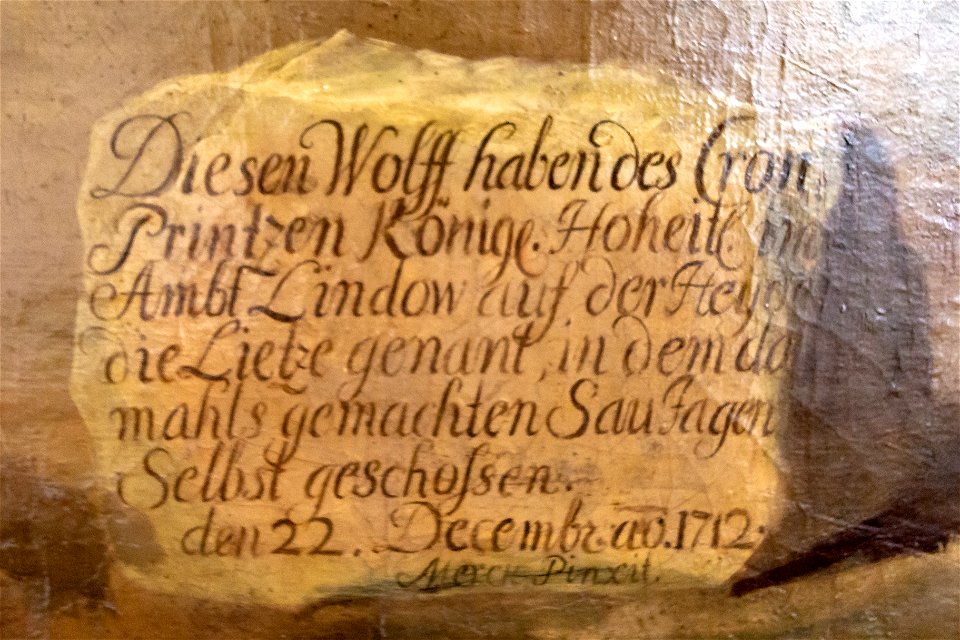 Diesen Wolff haben des Cron
Printzen Könige. Hoheit im
Ambt Lindow auf der Heyde
die Lietze genant, in dem da
mahls gemachten Sau Jagen
Selbst geschossen.
den 22. Decembr. ao. 1712.
Merck Pinxit.